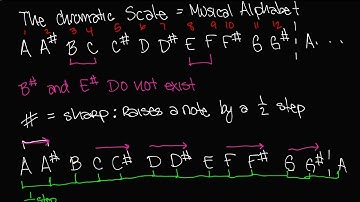 The chromatic Scale = Musical Alphabet
1 2 3 4 5 6 7 8 9 10 11 12
A A# B C C# D D# E F F# G G# A...
B# and E# Do not exist
# = sharp: Raises a note by a 1/2 step
A A# B C C# D D# E F F# G G# A
1/2 step